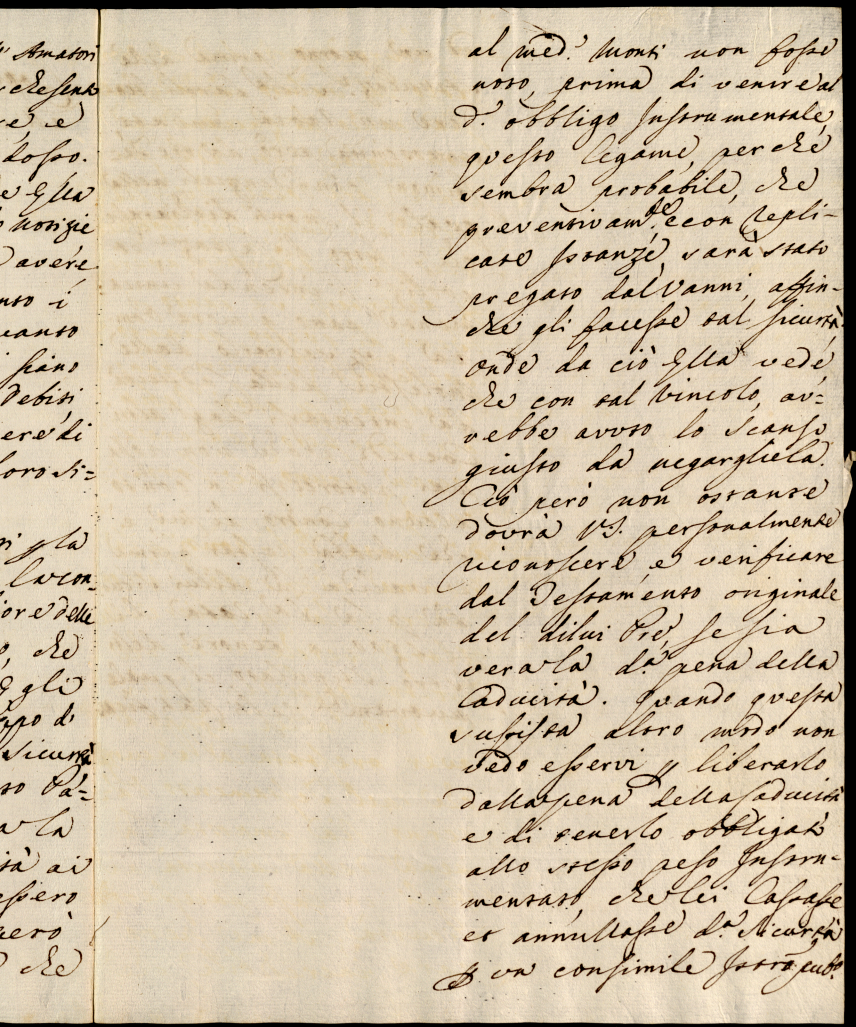 " Amatori
re, e
dosso.
e Ella
notizie
avere
nto i
uanto
siano
Debiti
ere di
loro si=
la
la con
iore delle
, che
gli
di
sicurtà
to Pa=
a la
tà ai
essero
però
che
al med.º Monti non fosse
noto, prima di venire al
d.º obbligo Instrumentale,
questo legame, perche
sembra probabile, che
preventivam.te e con repli-
cate Istanze, sarà stato
pregato dal Vanni, affin-
che gli facesse tal sicurtà,
onde da ciò Ella vede
che con tal Vincolo, av=
rebbe avuto lo scanso
giusto da negargliela.
Ciò però non ostante
dovrà VS. personalmente
riconoscere, e verificare
dal Testamento originale
del di lui Pre, se sia
vera la d.ª pena della
Caducità. Quando questa
sussista altro modo non
vedo esservi p liberarlo
dalla pena della Caducità
e di tenerlo obbligato
allo stesso peso Instru-
mentato, che lei Cassasse
et annullasse d.ª sicurtà
p un consimile Istro pub.º